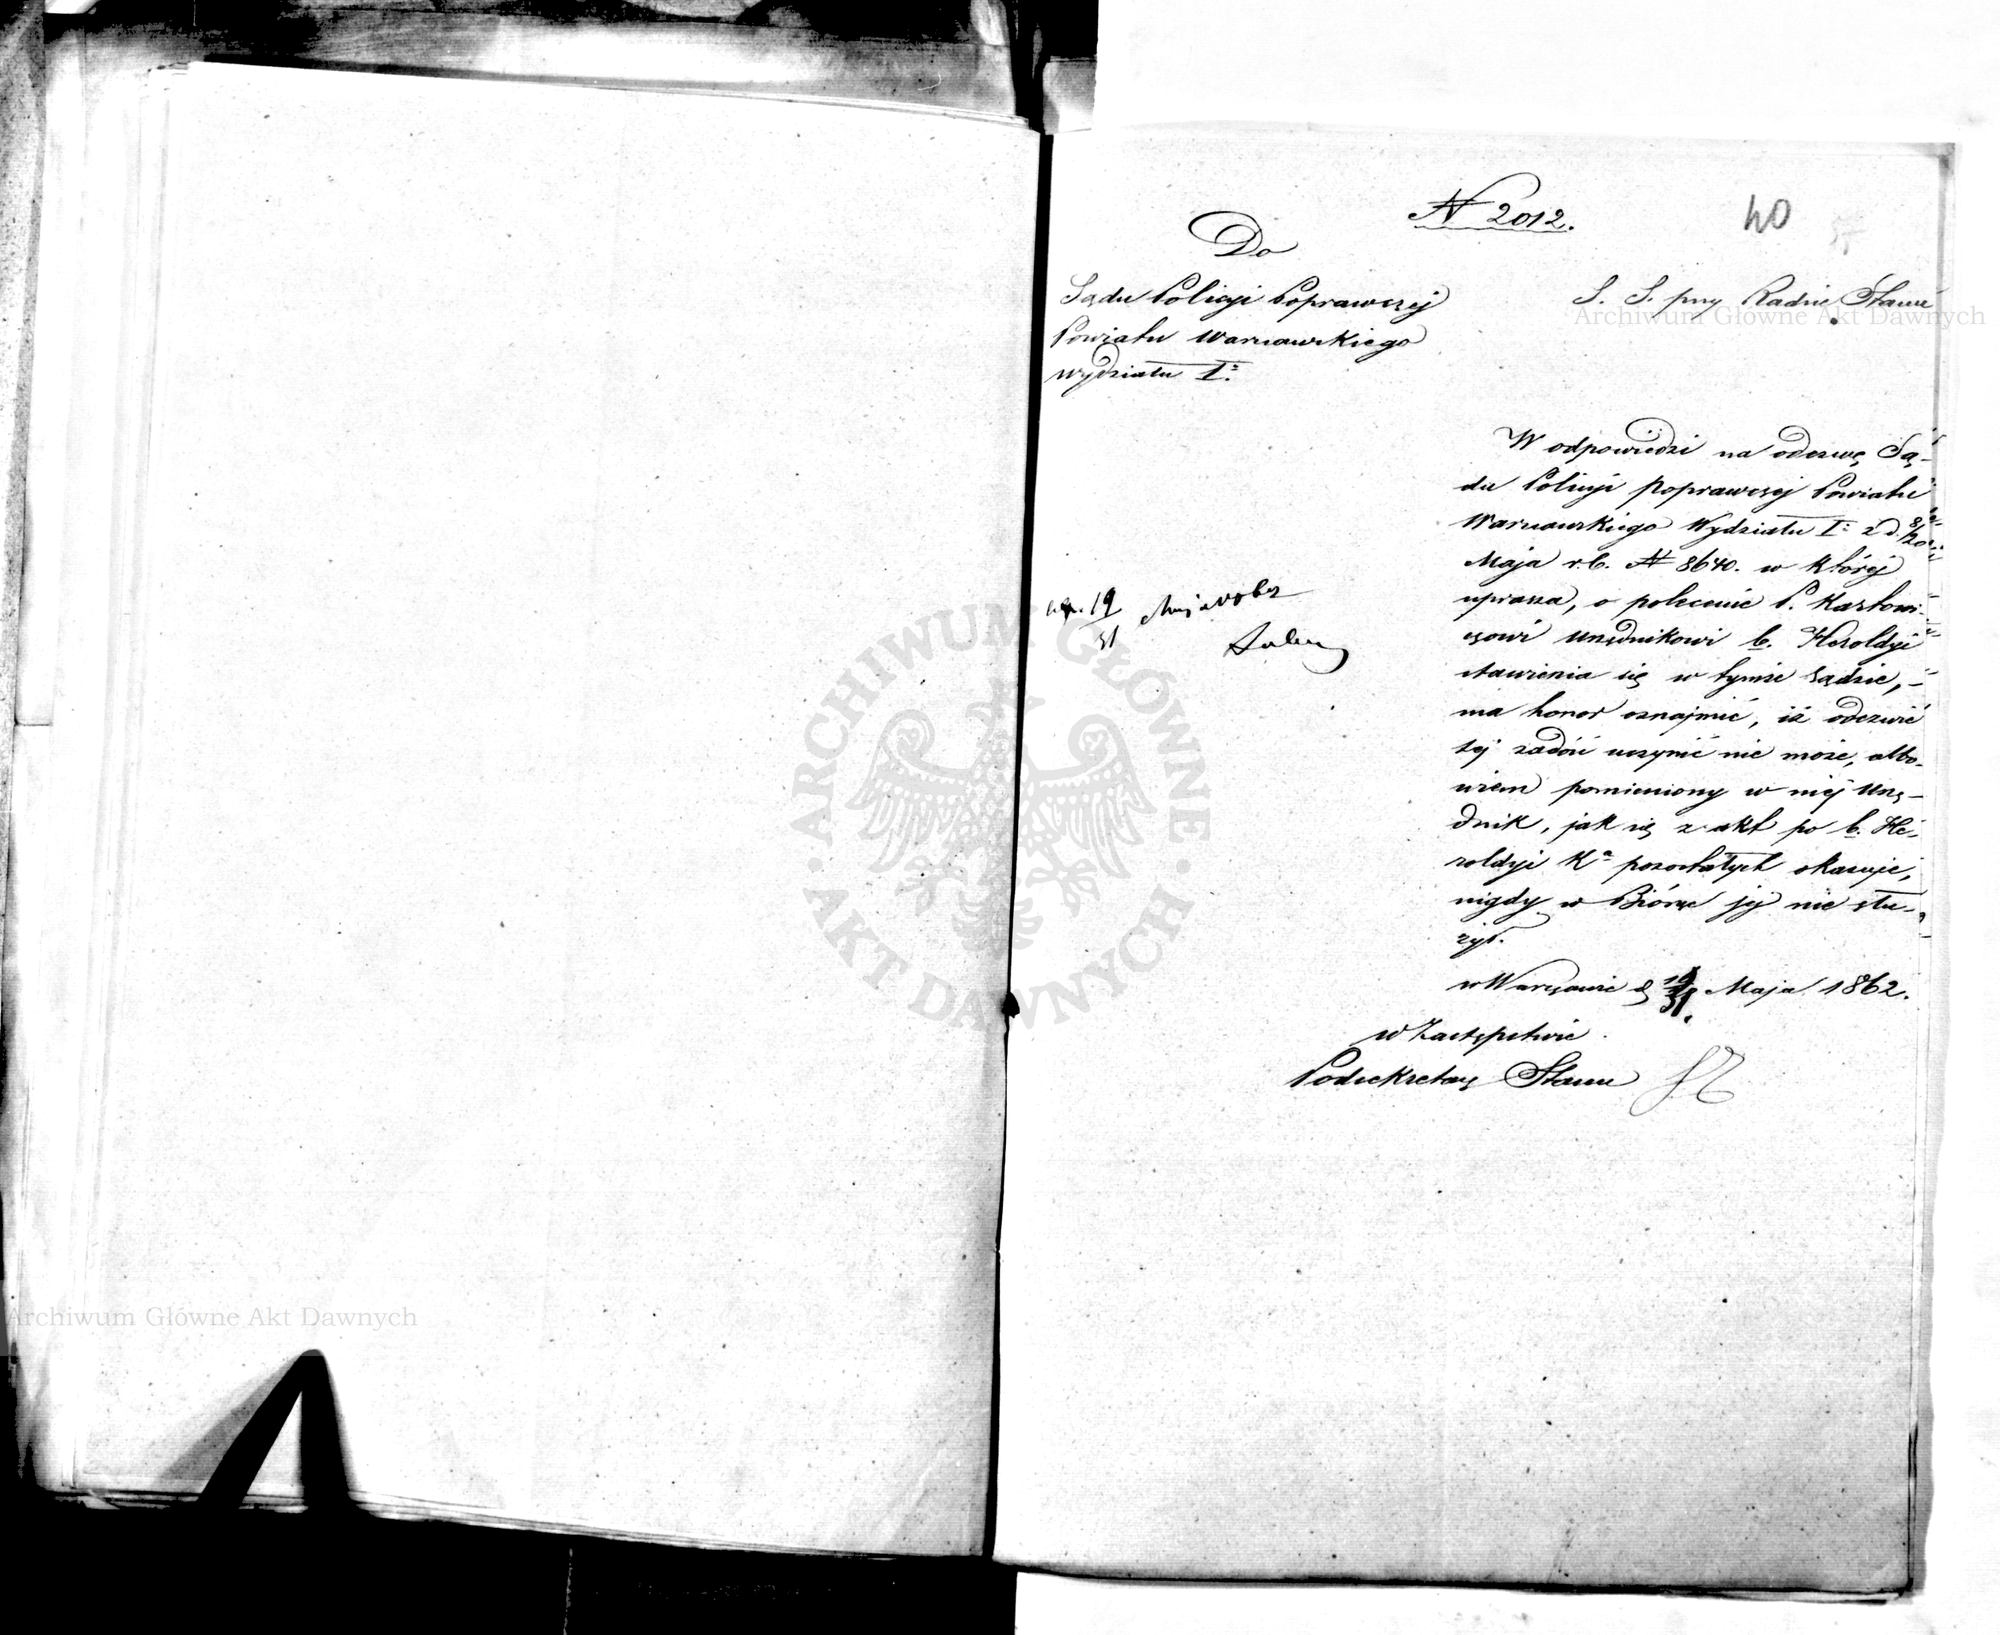 N 2012.
40
Do
Sądu Policyi Poprawczej
Powiatu Warszawskiego
Wydziału I:
S. S. przy Radzie Stanu
Archiwum Główne Akt Dawnych
W odpowiedzi na odezwę Są-
du Policyi Poprawczej Powiatu
Warszawskiego Wydziału I: z d. 8/20
Maja r.b. N 8640. w której
uprasza, o polecenie P. Karłowi-
czowi Urzędnikowi b. Heroldyi
stawienia się w tymże Sądzie,
ma honor oznajmić, iż odezwie
tej zadość uczynić nie może, albo-
wiem pomieniony w niej Urzę-
dnik, jak się z akt po b. He-
roldyi Kа pozostałych okazuje,
nigdy w Biórze jej nie słu-
żył.
w Warszawie d. 19/31 Maja 1862.
w Zastępstwie
Podsekretarz Stanu
19/31 Maja
ARCHIWUM GŁÓWNE AKT DAWNYCH
Archiwum Główne Akt Dawnych